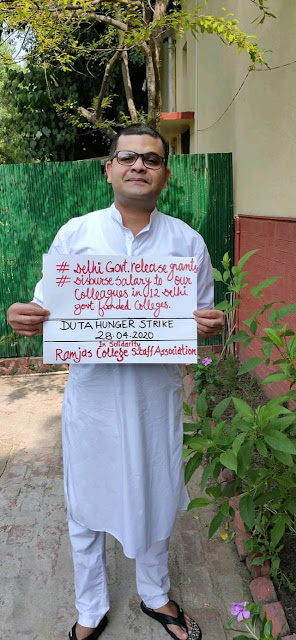 # Delhi Govt. release grants
# Disburse Salary to our
Colleagues in U12 Delhi
govt funded Colleges.
DUTA HUNGER STRIKE
28-04-2020
In Solidarity
Ramjas College Staff Association